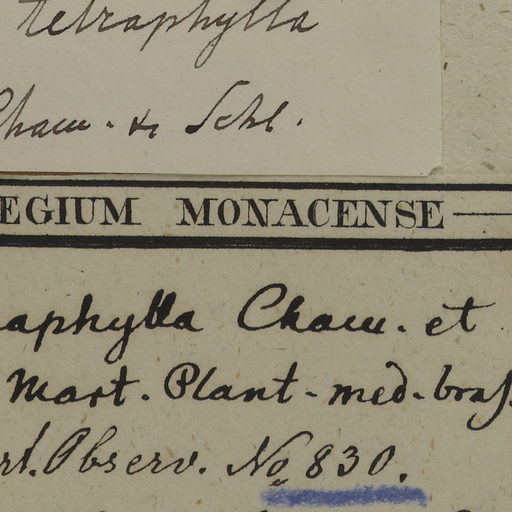 tetraphylla
Cham. & Schl.
EGIUM MONACENSE
aphylla Cham. et
Mart. Plant. med. bras.
rt. Observ. No 830.